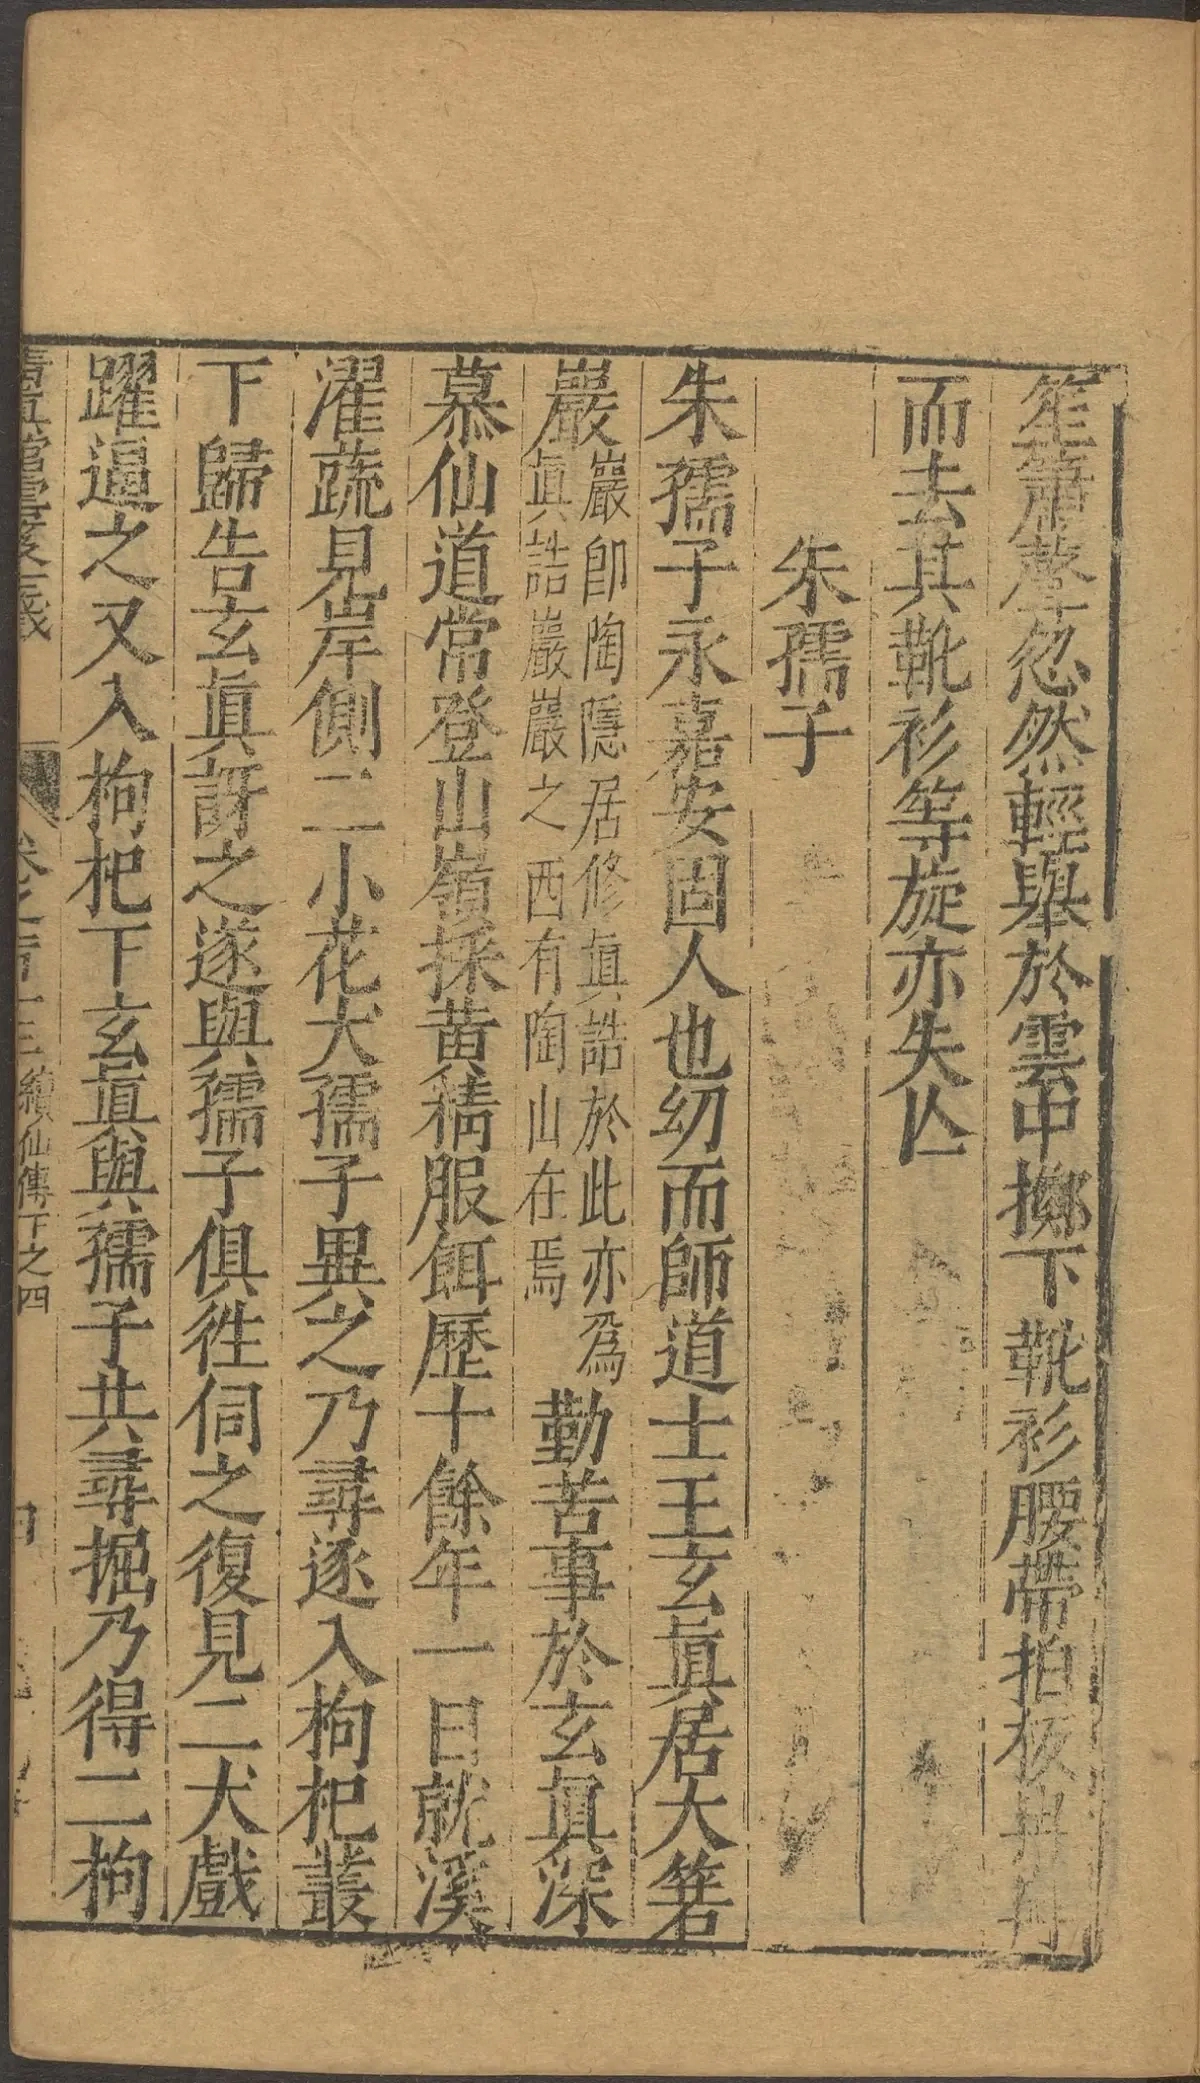 笙簫聲忽然輕舉於雲中擲下靴衫腰帶拍板冉冉
而去其靴衫等旋亦失亾
朱孺子
朱孺子永嘉安固人也幼而師道士王玄眞居大箬
巖巖卽陶隱居修眞誥於此亦爲眞誥巖巖之西有陶山在焉勤苦事於玄眞深
慕仙道常登山嶺採黄精服餌歷十餘年一日就溪
濯蔬見岸側二小花犬孺子異之乃尋逐入枸杞叢
下歸告玄眞訝之遂與孺子俱徃伺之復見二犬戲
躍逼之又入枸杞下玄眞與孺子共尋掘乃得二枸
卷之一百一十三續仙傳下之四